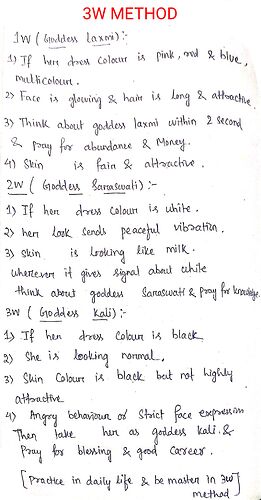 3W METHOD
1W ( Goddess Laxmi) :-
1) If her dress colour is pink, red & blue,
multicolour.
2) Face is glowing & hair is long & attractive.
3) Think about goddess laxmi within 2 second
& pray for abundance & Money.
4) Skin is fair & attractive.
2W ( Goddess Saraswati) :-
1) If her dress colour is white.
2) her look sends peaceful vibration.
3) skin is looking like milk.
wherever it gives signal about white
think about goddess Saraswati & pray for knowledge.
3W ( Goddess Kali) :-
1) If her dress Colour is black
2) She is looking normal,
3) Skin Colour is black but not highly
attractive
4) Angry behaviour or Strict face expression
Then take her as goddess Kali. &
Pray for blessing & good Career.
[ Practice in daily life & be master in 3W ]
method.